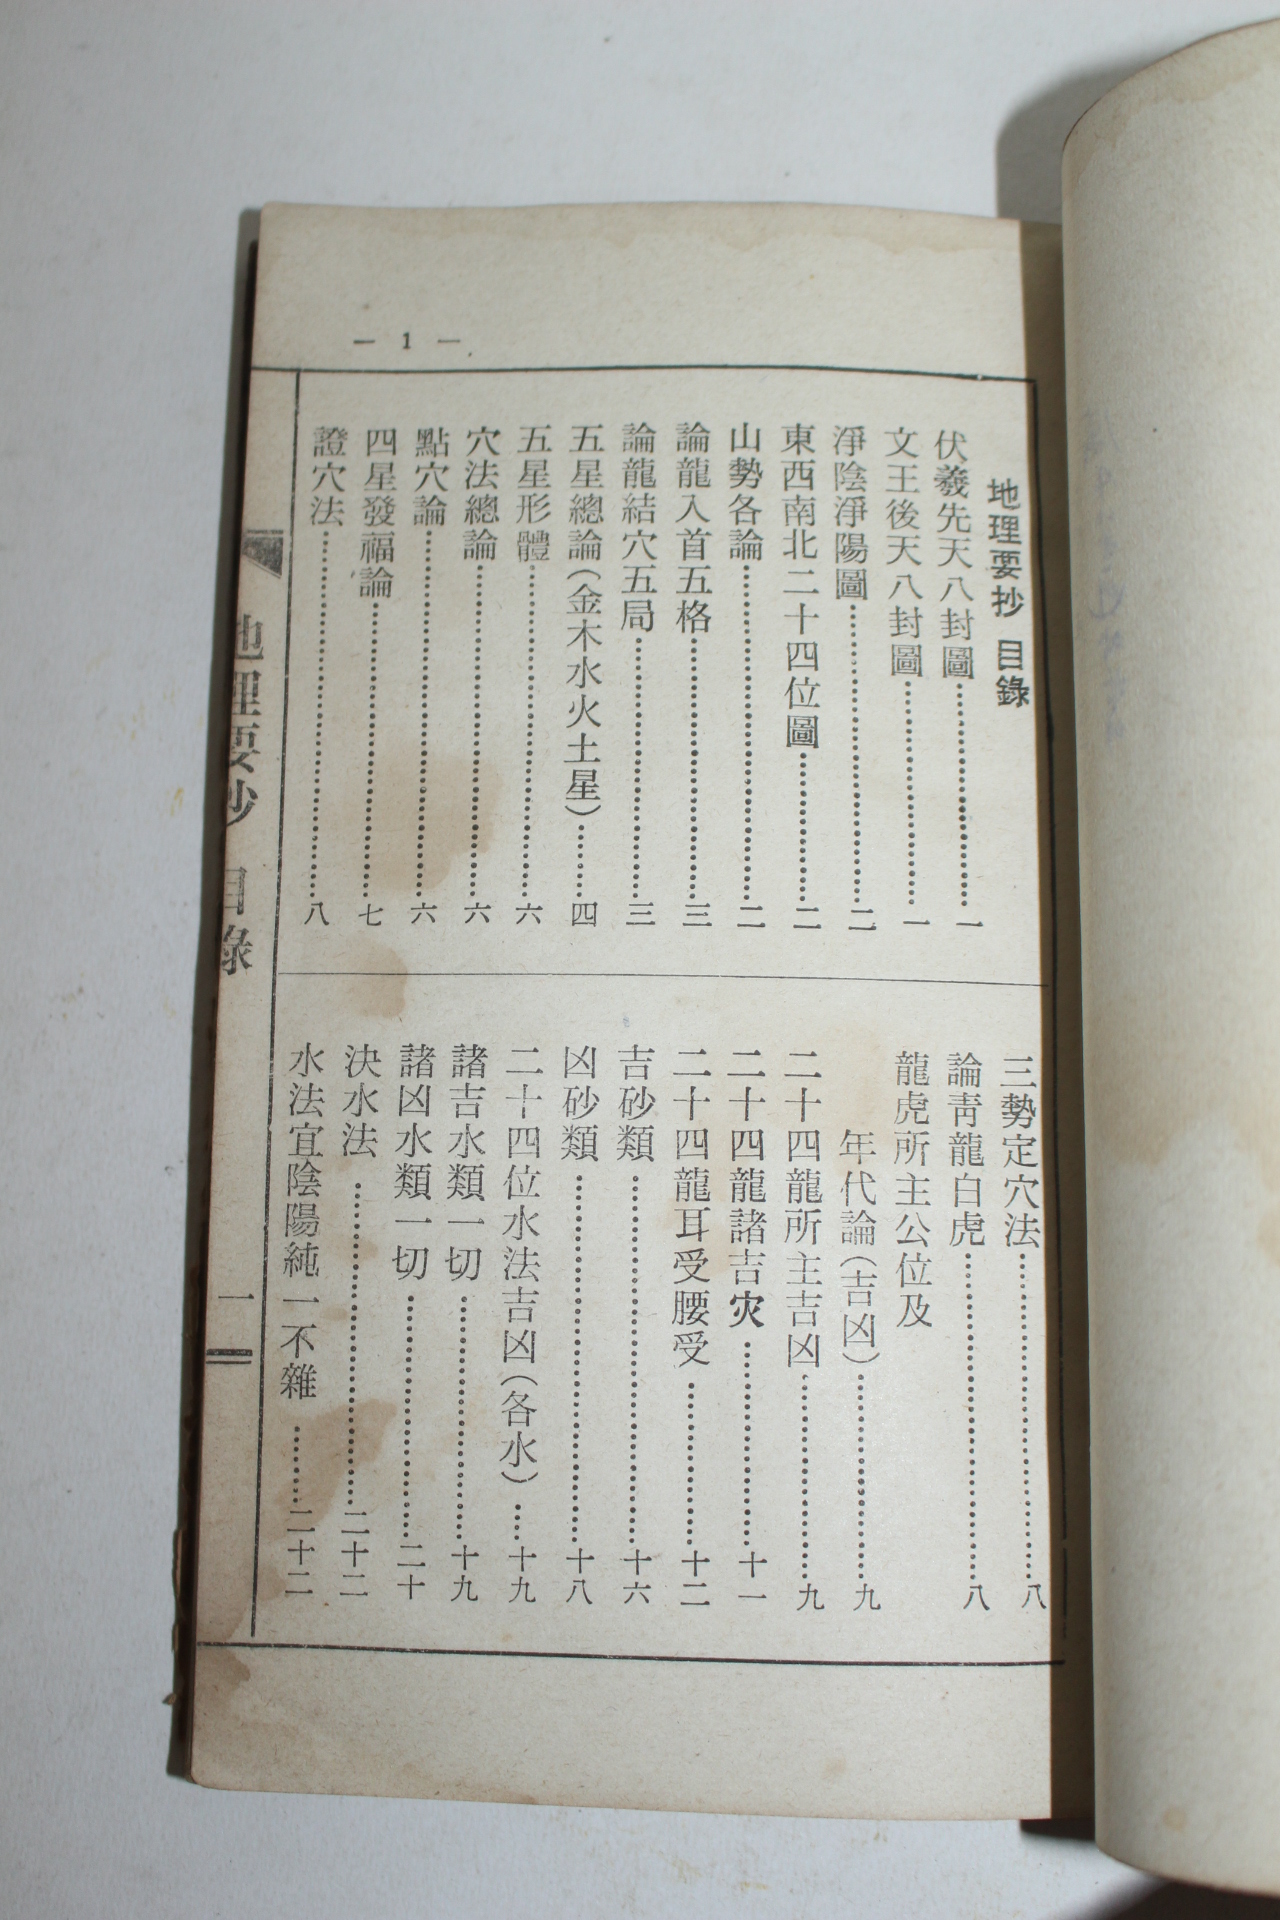 — 1 —
地理要抄 目錄
伏羲先天八封圖……………一
文王後天八封圖……………一
淨陰淨陽圖……………二
東西南北二十四位圖……………二
山勢各論……………二
論龍入首五格……………三
論龍結穴五局……………三
五星總論(金木水火土星)……四
五星形體……………六
穴法總論……………六
點穴論……………六
四星發福論……………七
證穴法……………八
三勢定穴法……………八
論靑龍白虎……………八
龍虎所主公位及
年代論(吉凶)……………九
二十四龍所主吉凶……………九
二十四龍諸吉灾……………十一
二十四龍耳受腰受……………十二
吉砂類……………十六
凶砂類……………十八
二十四位水法吉凶(各水)…十九
諸吉水類一切……………十九
諸凶水類一切……………二十
決水法……………二十二
水法宜陰陽純一不雜……二十二
地理要抄 目錄 一